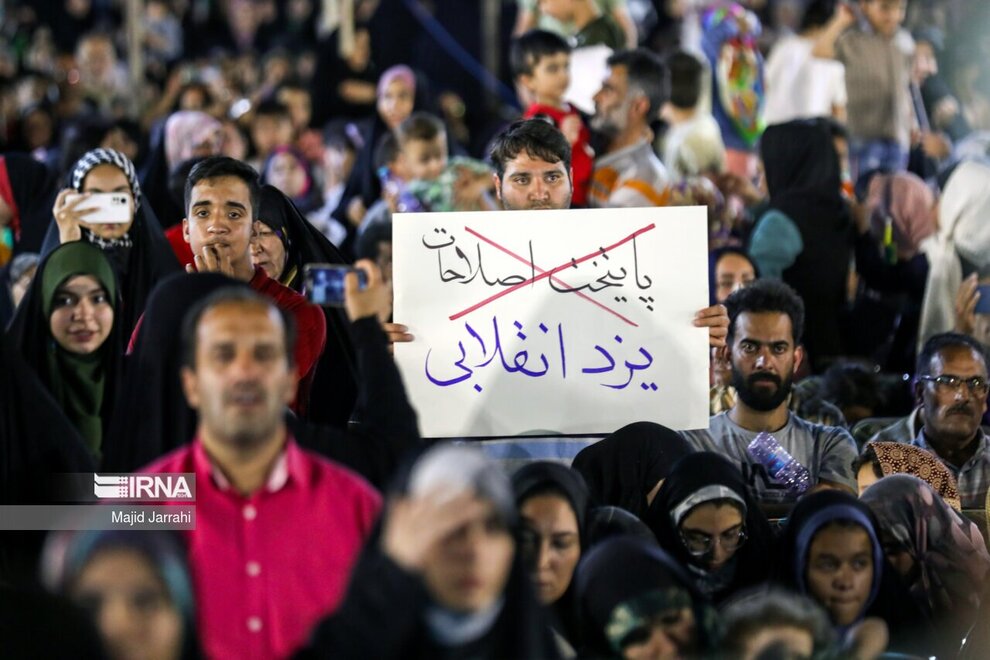 پایتخت اصلاحات
یزد انقلابی
IRNA
Majid Jarrahi